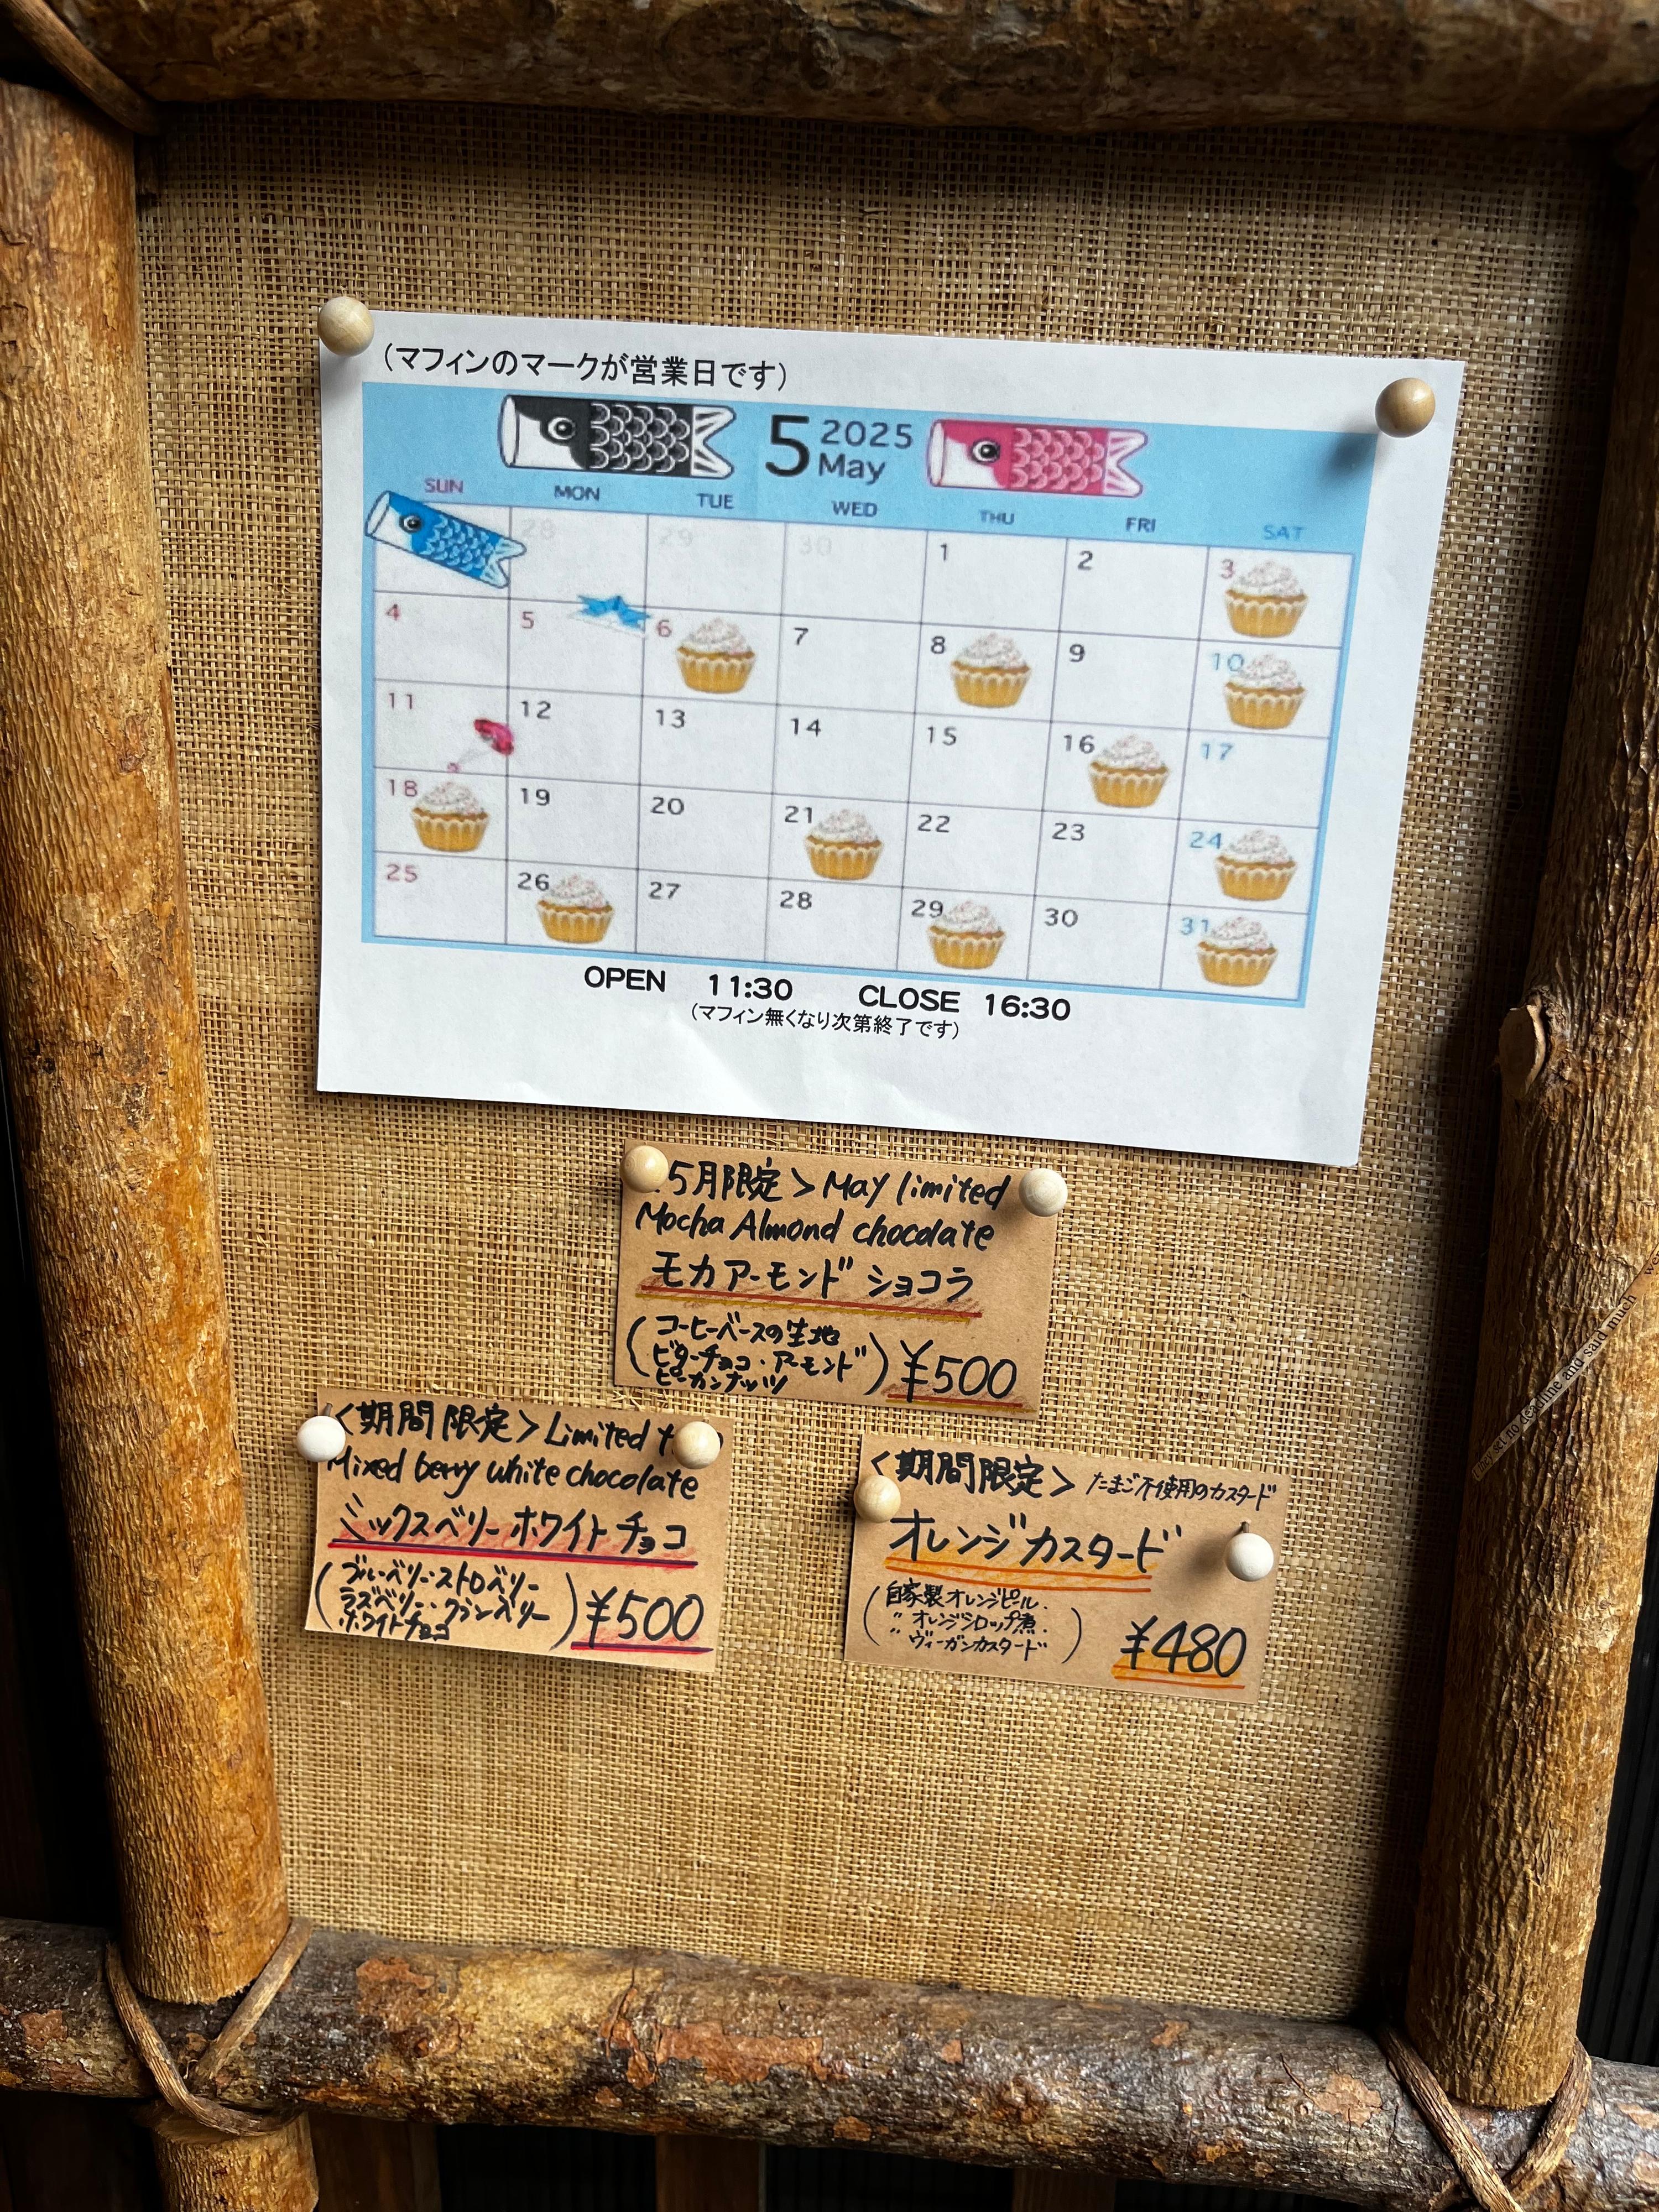 (マフィンのマークが営業日です)
5 2025 May
SUN MON TUE WED THU FRI SAT
28 29 30 1 2 3
4 5 6 7 8 9 10
11 12 13 14 15 16 17
18 19 20 21 22 23 24
25 26 27 28 29 30 31
OPEN 11:30 CLOSE 16:30
(マフィン無くなり次第終了です)
5月限定> May limited
Mocha Almond chocolate
モカアーモンドショコラ
(コーヒーベースの生地
ビターチョコ・アーモンド
ピーカンナッツ) ¥500
<期間限定> Limited
Mixed berry white chocolate
ミックスベリーホワイトチョコ
(ブルーベリー・ストロベリー
ラズベリー・クランベリー
ホワイトチョコ) ¥500
<期間限定> たまご不使用のカスタード
オレンジカスタード
(自家製オレンジピール.
〃 オレンジシロップ煮.
〃 ヴィーガンカスタード) ¥480
set no deadline and said much